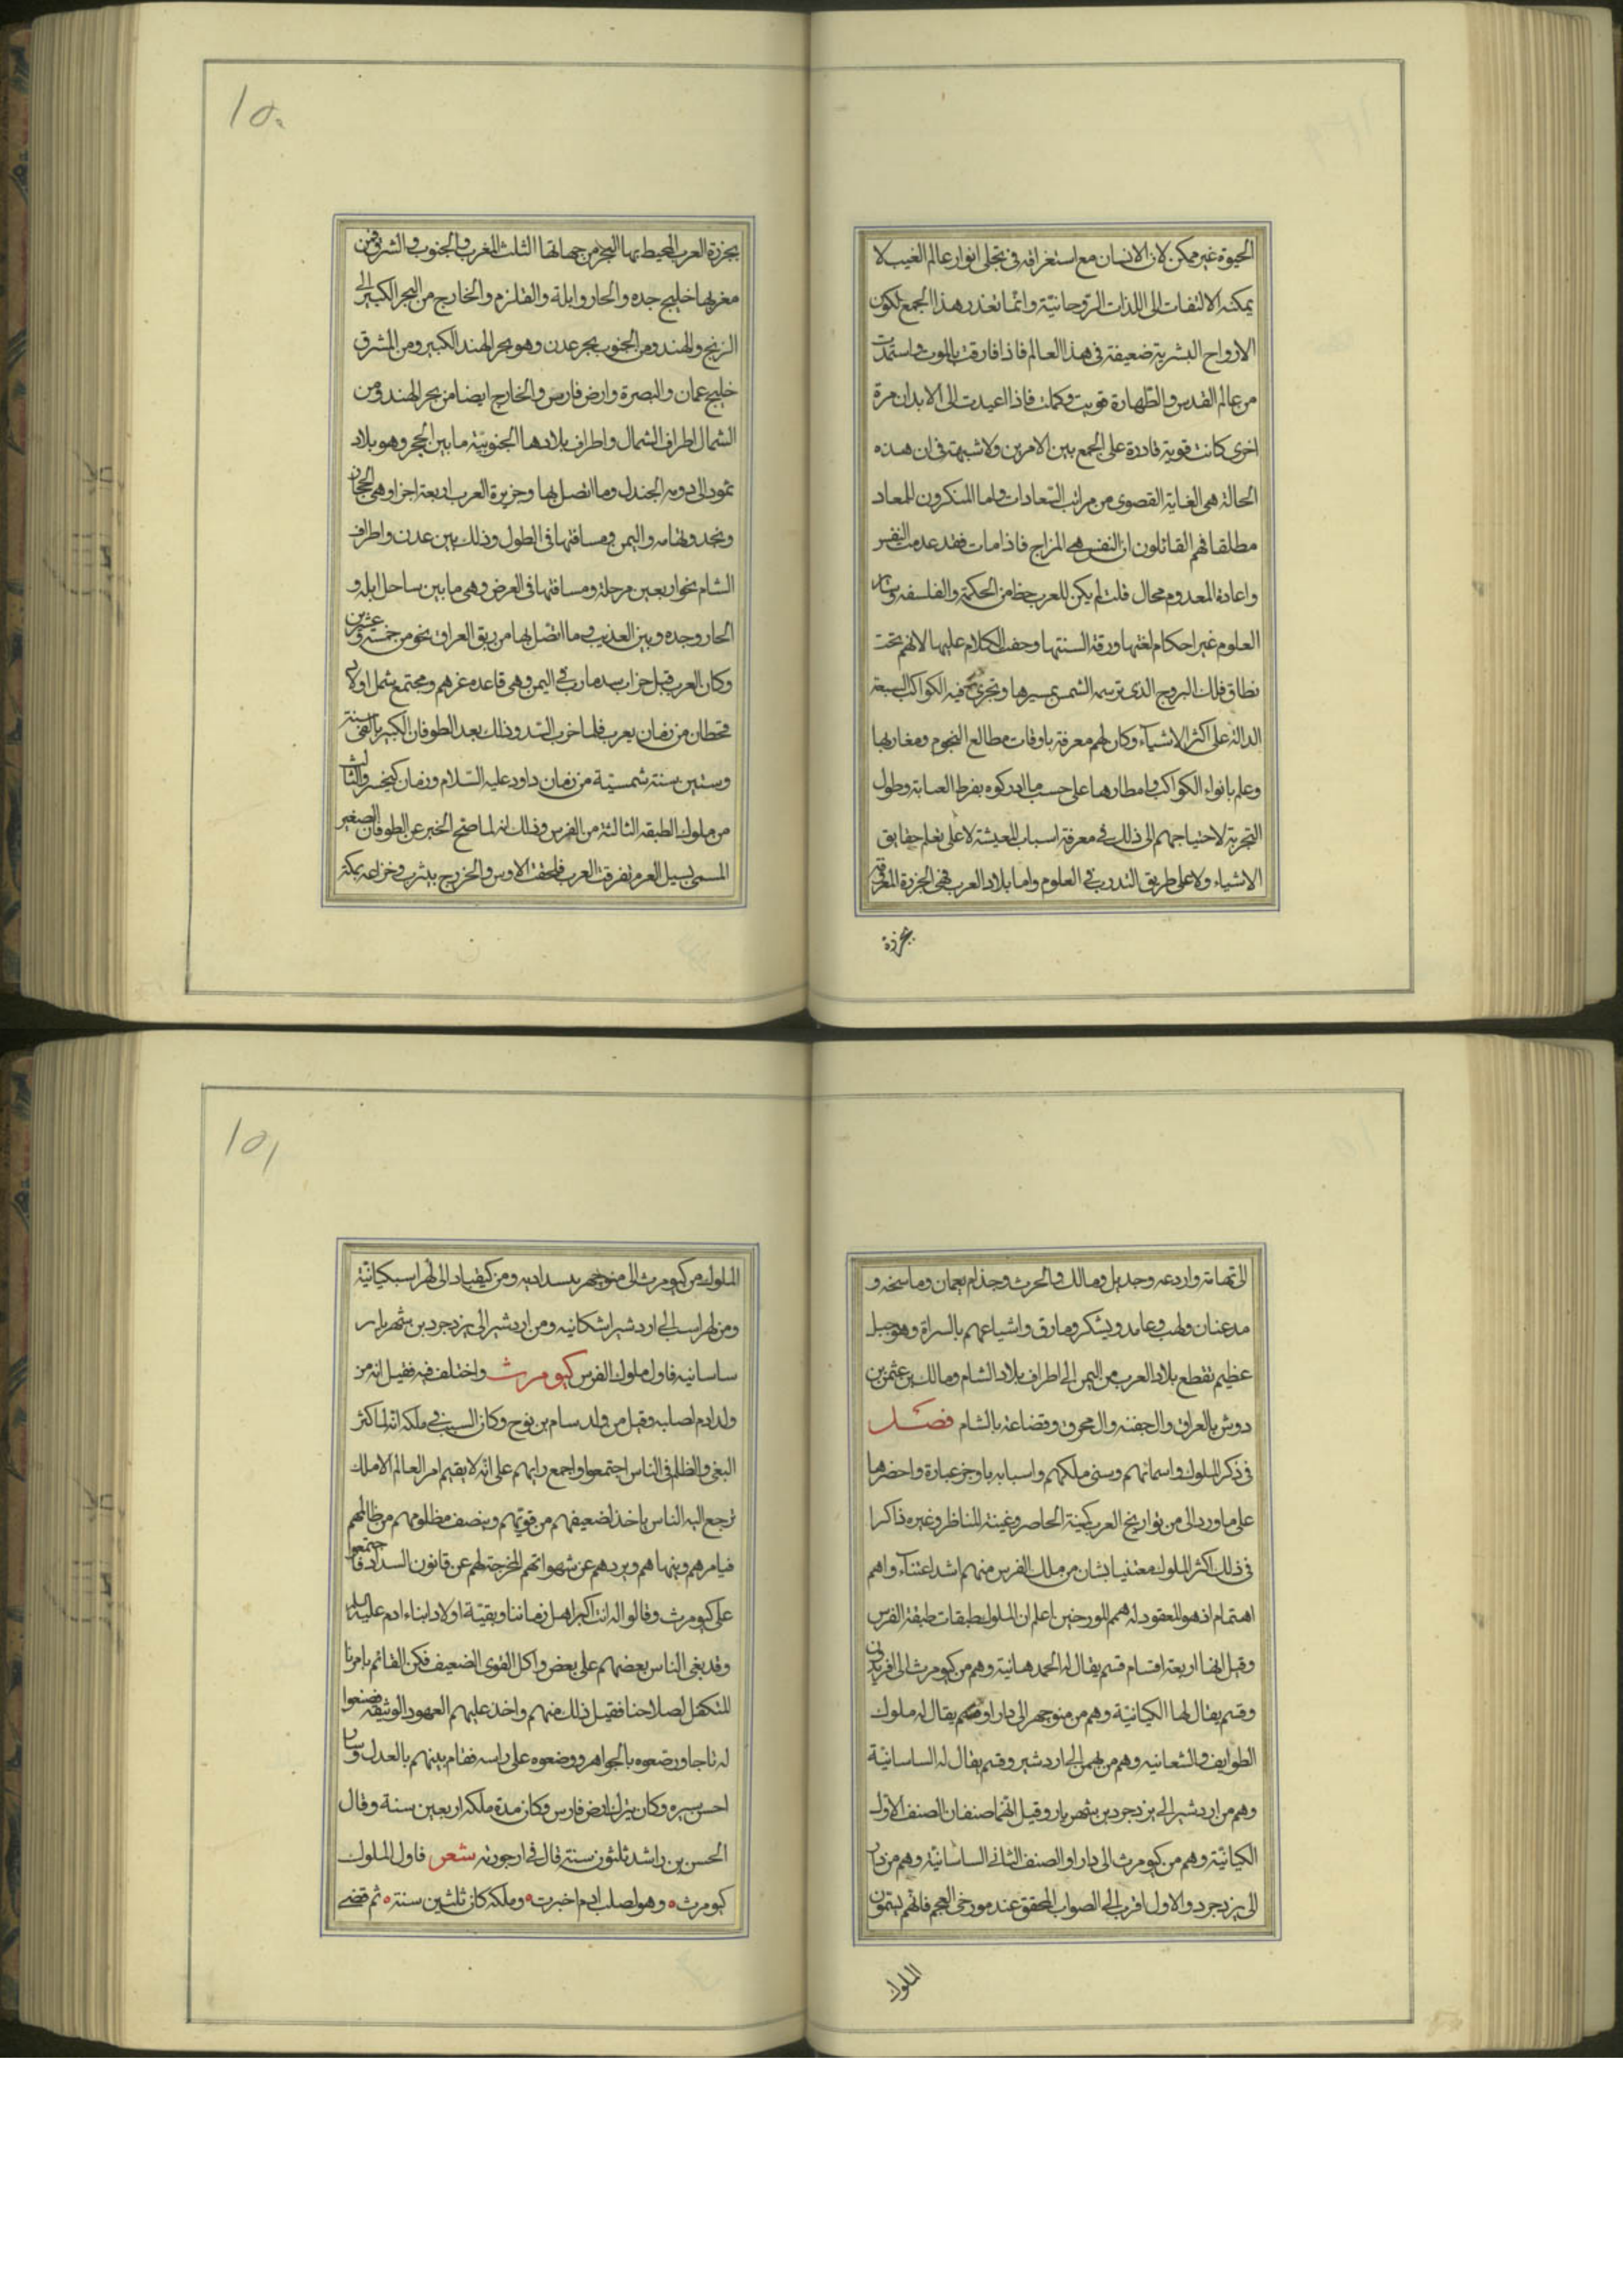 الحيوة غير ممكن لان الانسان مع استغراقه فى تجلى انوار عالم الغيب لا
يمكنه الالتفات الى اللذات الروحانيّة وانّما تعذر هذا الجمع لكون
الارواح البشرية ضعيفة فى هذا العالم فاذا فارقت بالموت واستمدّت
من عالم القدس والطّهارة قويت وكملت فاذا اعيدت الى الابدان مرة
اخرى كانت قوية قادرة على الجمع بين الامرين ولا شبهة فى ان هذه
الحالة هى الغاية القصوى من مراتب السّعادات واما المنكرون للمعاد
مطلقا فهم القائلون ان النفس هى المزاج فاذا مات فقد عدمت النفس
واعادة المعدوم محال قلت لم يكن للعرب حظ من الحكمة والفلسفه وسائر
العلوم غير احكام لغتها ورقة السنتها وحفت الكلام عليها لانهم تحت
نطاق فلك البروج الذى ترسمه الشمس بمسيرها وتجرى فيه الكواكب السبعة
الدالة على اكثر الاشيآء وكان لهم معرفة باوقات مطالع النجوم ومغاربها
وعلم بانواء الكواكب وامطارها على حسب ما ادركوه بفرط العناية وطول
التجربة لاحتياجهم الى ذلك فى معرفة اسباب المعيشة لا على تعلم حقايق
الاشياء ولا على طريق التدرب فى العلوم واما بلاد العرب فهى الجزرة المعروفة
بجزرة
١٥٠
بجزرة العرب المحيط بها البحر من جهاتها الثلث المغرب والجنوب والشرق فمن
مغربها خليج جده والحار وايلة والقلزم والخارج من البحر الكبير الى
الزنج والهند ومن الجنوب بحر عدن وهو بحر الهند الكبير ومن المشرق
خليج عمان والبصرة وارض فارس والخارج ايضا من بحر الهند ومن
الشمال اطراف الشمال واطراف بلادها الجنوبيّة ما بين الحجر وهو بلاد
ثمود الى دومه الجندل وما اتصل بها وجزيرة العرب اربعة اجزا وهى الحجاز
ونجد وتهامه واليمن ومسافتها فى الطول وذلك بين عدن واطراف
الشام نحو اربعين مرحلة ومسافتها فى العرض وهى ما بين ساحل ايله و
الحار وجده وبين العذيب وما اتّصل بها من ريق العراق نحو من خمسة وعشرين
وكان العرب قبل خراب سد مارب فى اليمن وهى قاعده عزهم ومجتمع شمل اولاد
قحطان من زمان يعرب فلما خرب السّد وذلك بعد الطوفان الكبير بالفى سنة
وستين سنة شمسيّة من زمان داود عليه السّلام وزمان كيخسرو الثالث
من ملوك الطبقه الثالثة من الفرس وذلك انه لما صّح الخبر عن الطوفان الصغير
المسمى بسيل العرم تفرقت العرب فلحقت الاوس والخزرج بيثرب وخزاعه بمكة
الى تهامة وارد عه وجديل ومالك والحرث وجذام بعمان وماسخه و
مدعنان ولهب وعامد ويشكر ومارق واشياعهم بالسراة وهو جبل
عظيم تقطع بلاد العرب من اليمن الى اطراف بلاد الشام ومالك بن عثمن بن
دوش بالعراق وال جفنه وال محرق وقضاعة بالشام فصل
فى ذكر الملوك واسمائهم وسنى ملكهم واسبابه باوجز عبارة واحضرها
على ما ورد الى من تواريخ العرب كمينة الحاصر وغينة المناظر وغيره ذاكرا
فى ذلك اكثر الملوك معتنيا بشان من ملك الفرس منهم اشد اعتنآء واهم
اهتمام اذ هو المعقود له همم المورخين اعلم ان الملوك طبقات طبقة الفرس
وقيل انها اربعة اقسام قسم يقال له الحمدهانية وهم من كيومرث الى افريدون
وقسم يقال لها الكيانيّة وهم من منوجهر الى دارا وقسم يقال له ملوك
الطوايف والشعانيه وهم من بهمن الى اردشير وقسم يقال له الساسانيّة
وهم من اردشير الى يزدجرد بن شهريار وقيل انّهما صنفان الصنف الاول
الكيانيّة وهم من كيومرث الى دارا والصنف الثانى الساسانيّة وهم من دارا
الى يزدجرد والاول اقرب الى الصواب المحقق عند مورخى العجم فانّهم يسمّون
الملوك
١٥١
الملوك من كيومرث الى منوجهر بيسداديه ومن كيقباد الى لهراسب كيانيّة
ومن لهراسب الى اردشير اشكانيه ومن اردشير الى يزدجرد بن شهريار
ساسانيه فاول ملوك الفرس كيومرث واختلف فيه فقيل انه من
ولد ادم لصلبه وقيل من ولد سام بن نوح وكان السبب فى ملكه انّه لما كثر
البغى والظلم فى الناس اجتمعوا واجمع رايهم على انّه لا يقيم امر العالم الا ملك
ترجع اليه الناس ياخذ لضعيفهم من قويّهم وينصف مظلومهم من ظالمهم
فيامرهم وينهاهم ويردهم عن شهواتهم المخرجة لهم عن قانون السداد فاجتمعوا
على كيومرث وقالوا له انت اكبر اهل زماننا وبقيّة اولاد ابناء ادم عليه السلم
وقد بغى الناس بعضهم على بعض واكل القوى الضعيف فكن القائم بامرنا
المتكفل لصلاحنا فقبل ذلك منهم واخذ عليهم العهود الوثيقه فصنعوا
له تاجا ورصعوه بالجواهر ووضعوه على راسه فقام بينهم بالعدل وسار
احسن سيره وكان ينزل ارض فارس وكان مدة ملكه اربعين سنة وقال
الحسن بن راشد ثلثون سنة قال فى ارجوزته شعر فاول الملوك
كيومرث ٥ وهو لصلب ادم اخبرت ٥ وملكه كان ثلثين سنة ٥ ثم قضى